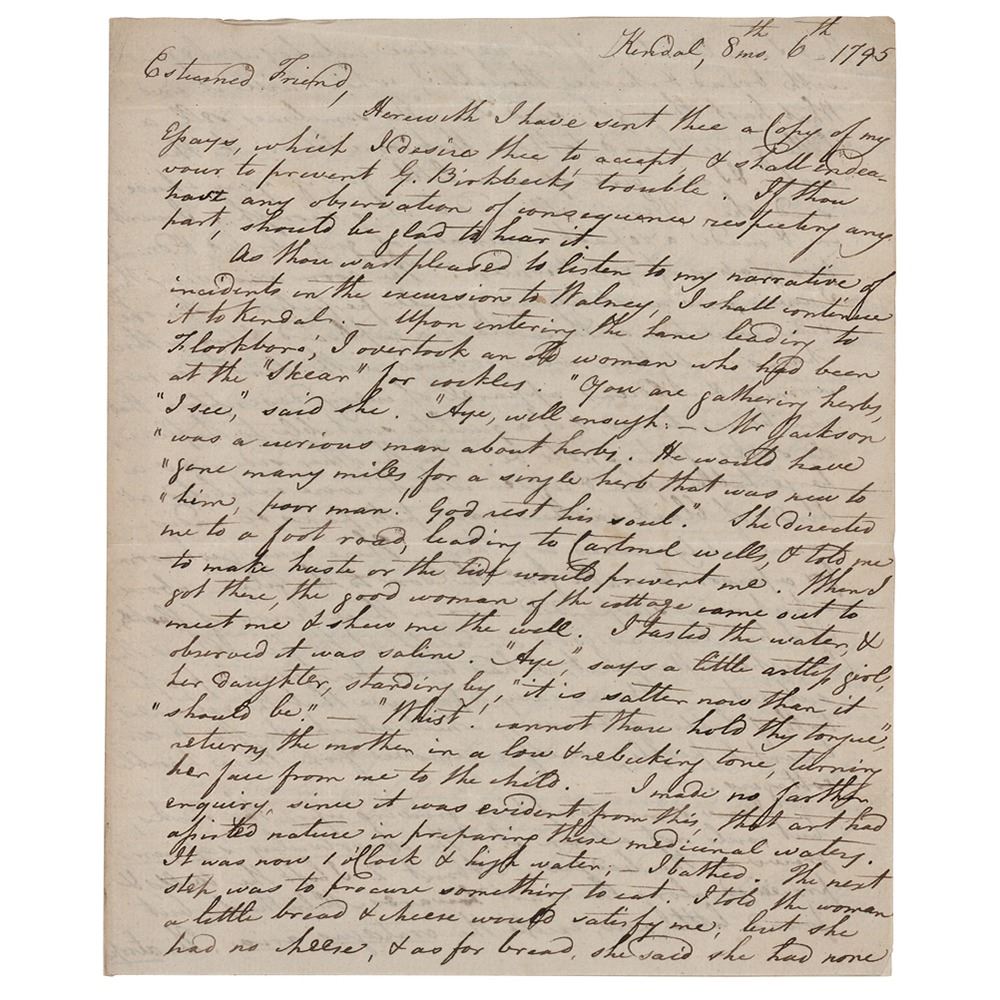 Kendal, 8mo. 6th 1795
Esteemed Friend,
Herewith I have sent thee a Copy of my
Eſsays, which I desire thee to accept & shall endea-
vour to prevent G. Birkbeck's trouble. If thou
have any observation of consequence respecting any
part, should be glad to hear it
As thou wast pleased to listen to my narrative of
incidents in the excursion to Walney, I shall continue
it to Kendal. — Upon entering the lane leading to
Flookboro', I overtook an old woman who had been
at the "Skear" for cockles. "You are gathering herbs,
"I see," said she. "Aye, well enough. — Mr Jackson
"was a curious man about herbs. He would have
"gone many miles for a single herb that was new to
"him, poor man! God rest his soul." She directed
me to a foot road, leading to Cartmel wells, & told me
to make haste or the tide would prevent me. When I
got there, the good woman of the cottage came out to
meet me & shew me the well. I tasted the water, &
observed it was saline. "Aye," says a little artleſs girl,
her daughter, standing by, "it is salter now than it
"should be." — "Whist! cannot thou hold thy tongue",
returns the mother in a low & rebuking tone, turning
her face from me to the child. — I made no farther
enquiry, since it was evident from this, that art had
aſsisted nature in preparing these medicinal waters.
It was now 1 o'Clock & high water; — I bathed. The next
step was to procure something to eat. I told the woman
a little bread & cheese would satisfy me; but she
had no cheese, & as for bread, she said she had none